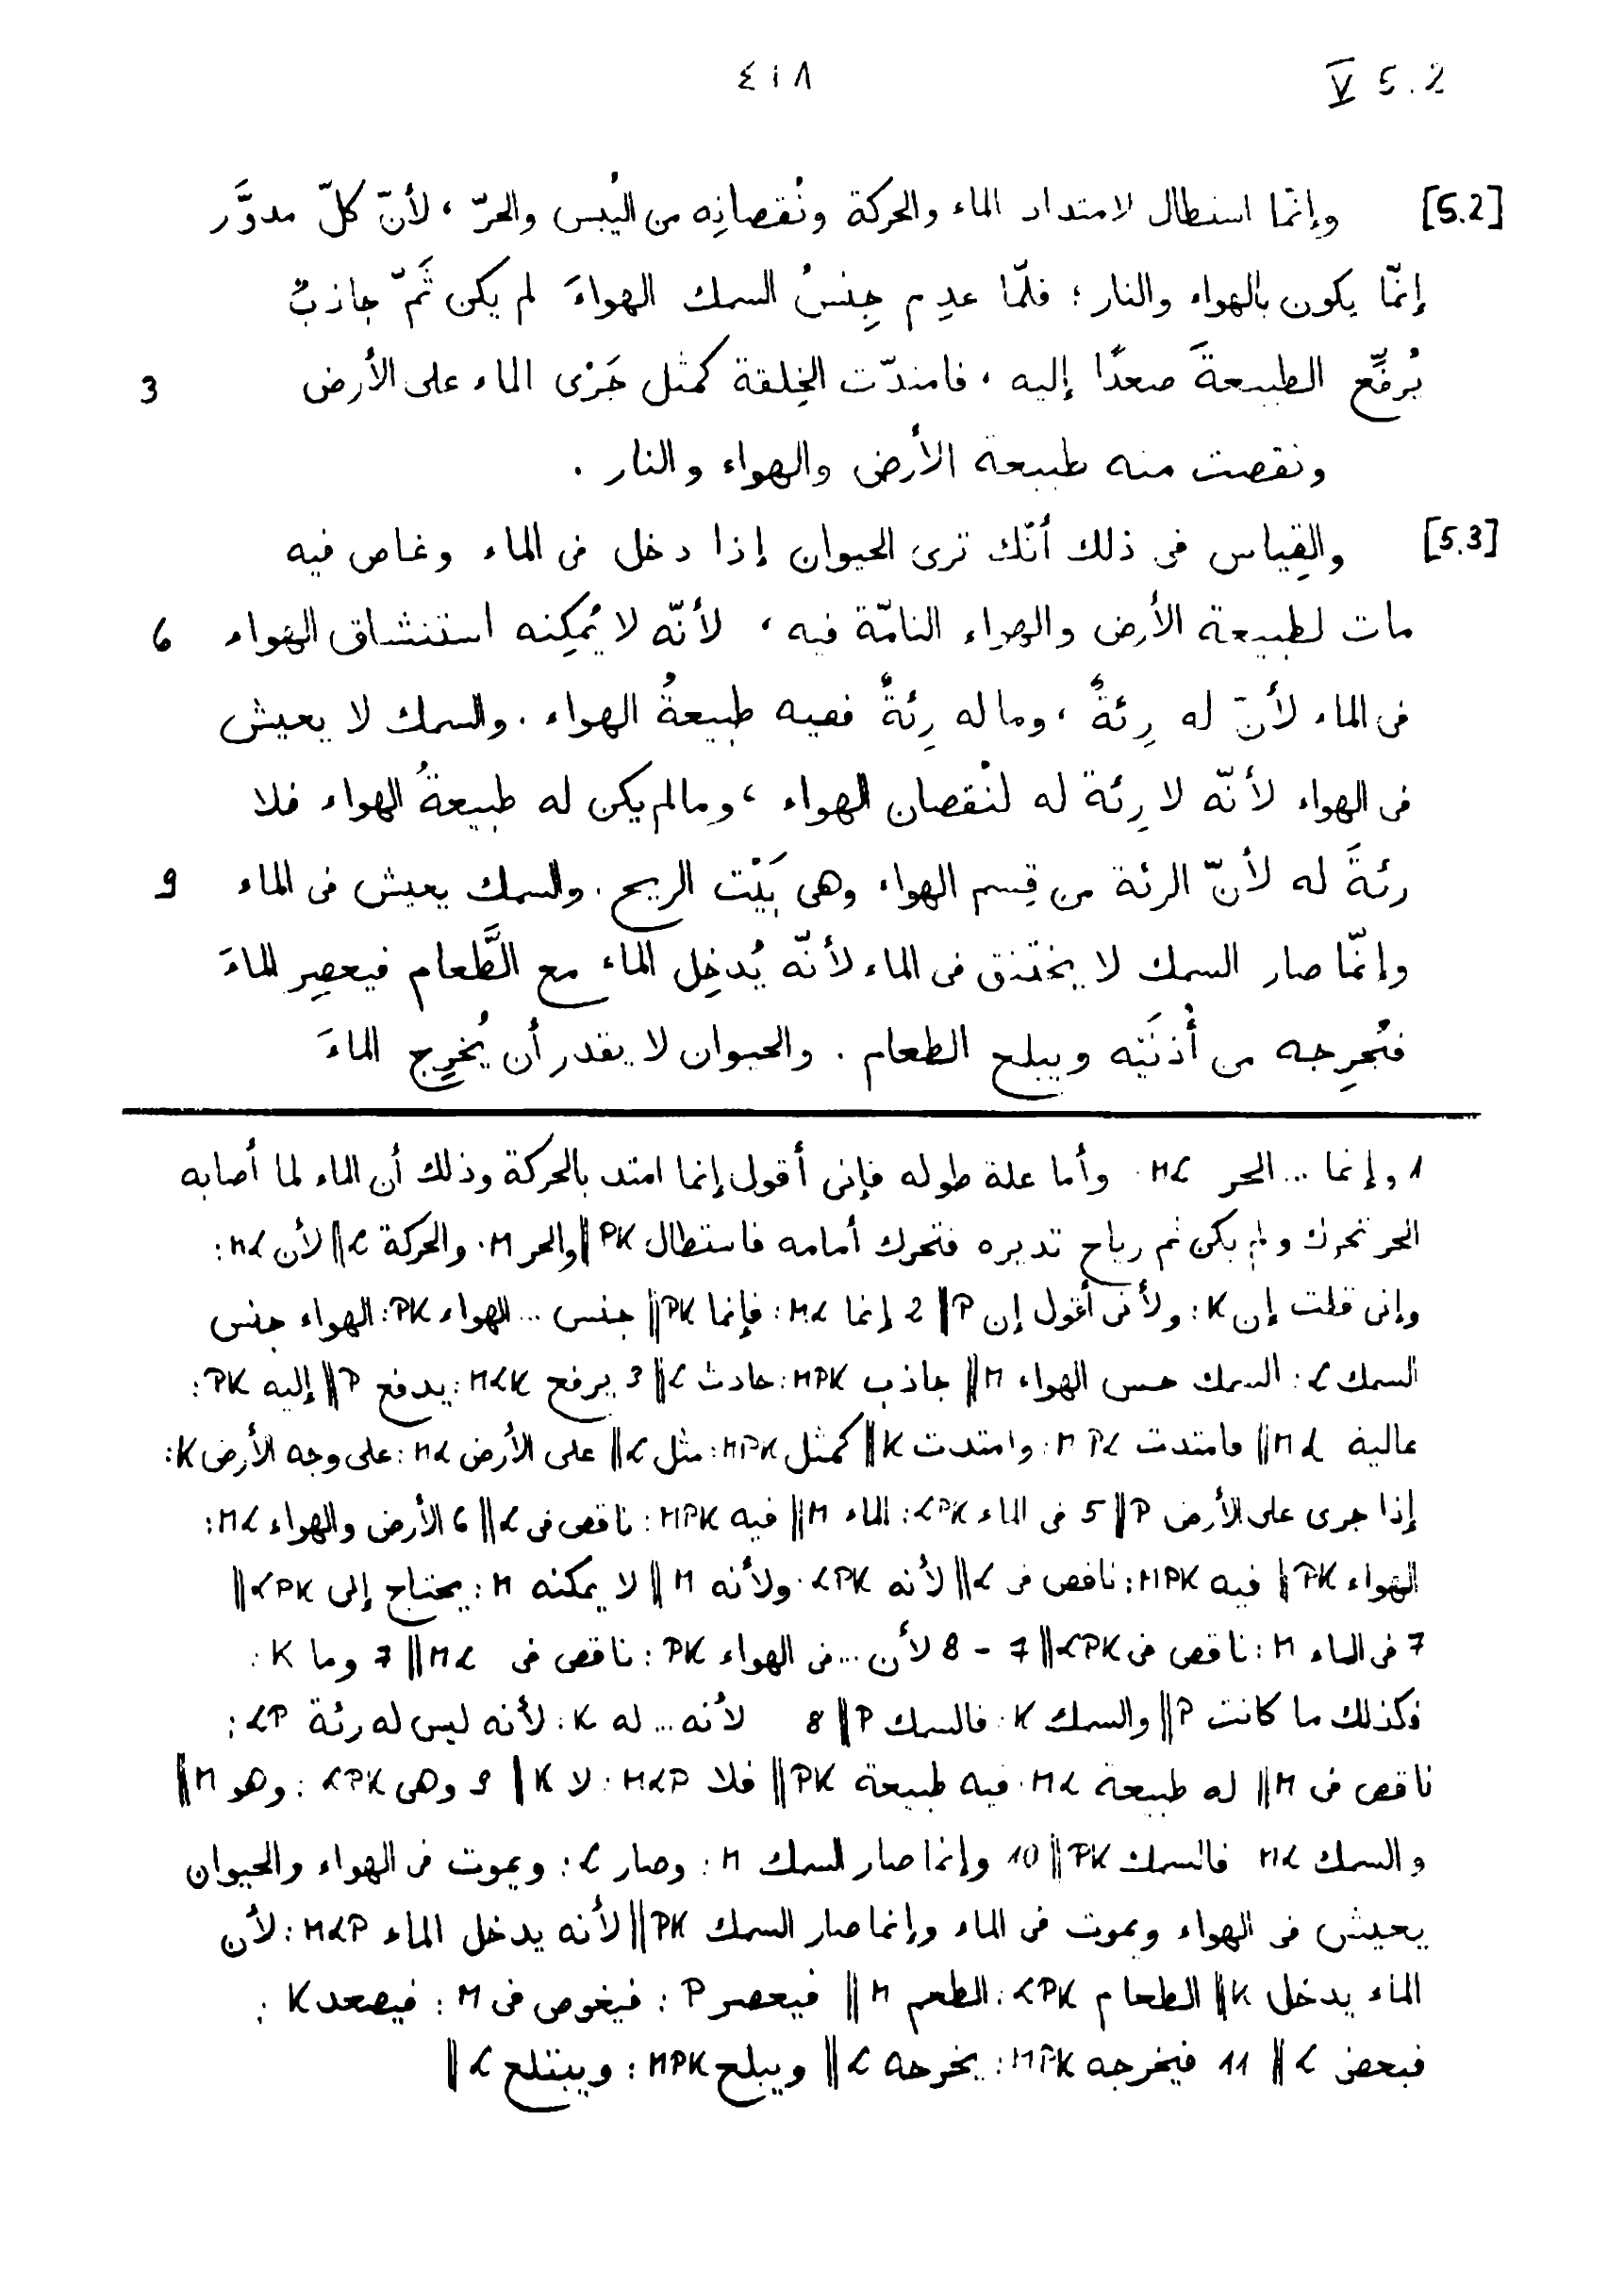 ٤١٨ V 5.2
[5.2] وإنّما استطال لامتداد الماء والحركة ونُقصانِه من اليُبس والحرّ، لأنّ كلّ مدوَّر
إنّما يكون بالهواء والنار؛ فلمّا عدِم جِنسُ السمك الهواءَ لم يكن ثَمّ جاذبٌ
يُرفِّع الطبيعةَ صعدًا إليه، فامتدّت الخِلقة كمثل جَرْى الماء على الأرض 3
ونقصت منه طبيعة الأرض والهواء والنار.
[5.3] والقِياس فى ذلك أنّك ترى الحيوان إذا دخل فى الماء وغاص فيه
مات لطبيعة الأرض والهواء التامّة فيه، لأنّه لا يُمكِنه استنشاق الهواء 6
فى الماء لأنّ له رِئةً، وما له رِئةٌ ففيه طبيعةُ الهواء. والسمك لا يعيش
فى الهواء لأنّه لا رِئة له لنُقصان الهواء، وما لم يكن له طبيعةُ الهواء فلا
رئةَ له لأنّ الرئة من قِسم الهواء وهى بَيْت الريح. والسمك يعيش فى الماء 9
وإنّما صار السمك لا يختنق فى الماء لأنّه يُدخِل الماء مع الطَّعام فيعصِر الماءَ
فيُخرِجه من أُذنَيْه ويبلع الطعام. والحيوان لا يقدر أن يُخرِج الماءَ
1 وإنما ... الحر ML. وأما علة طوله فإنى أقول إنما امتد بالحركة وذلك أن الماء لما أصابه
الحر تحرك ولم يكن ثم رياح تديره فتحرك أمامه فاستطال PK || والحر M. والحركة L || لأن ML:
وإنى قلت إن K: ولأنى أقول إن P || 2 إنما ML: فإنما PK || جنس ... الهواء PK: الهواء جنس
السمك L: السمك حس الهواء M || جاذب MPK: حادث L || 3 يرفع MLK: يدفع P || إليه PK:
عالية ML || فامتدت MPL: وامتدت K || كمثل MPK: مثل L || على الأرض ML: على وجه الأرض K:
إذا جرى على الأرض P || 5 فى الماء LPK: الماء M || فيه MPK: ناقص فى L || 6 الأرض والهواء ML:
الهواء PK || فيه MPK: ناقص فى L || لأنه LPK. ولأنه M || لا يمكنه M: يحتاج إلى LPK ||
7 فى الماء M: ناقص فى LPK || 7 - 8 لأن ... فى الهواء PK: ناقص فى ML || 7 وما K:
فكذلك ما كانت P || والسمك K. فالسمك P || 8 لأنه ... له K: لأنه ليس له رئة LP:
ناقص فى M || له طبيعة ML. فيه طبيعة PK || فلا MLP: لا K || 9 وهى LPK: وهو M ||
والسمك ML فالسمك PK || 10 وإنما صار السمك M: وصار L: ويموت فى الهواء والحيوان
يعيش فى الهواء ويموت فى الماء وإنما صار السمك PK || لأنه يدخل الماء MLP: لأن
الماء يدخل K || الطعام LPK: الطعم M || فيعصر P: فيغوص فى M: فيصعد K:
فبعض L || 11 فيخرجه MPK: يخرجه L || ويبلع MPK: ويبتلع L ||